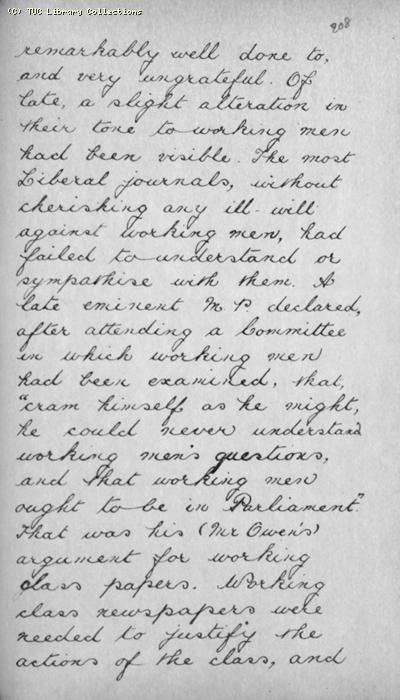 (C) TUC Library Collections
208
remarkably well done to,
and very ungrateful. Of
late, a slight alteration in
their tone to working men
had been visible. The most
Liberal journals, without
cherishing any ill-will
against working men, had
failed to understand or
sympathise with them. A
late eminent M.P. declared,
after attending a Committee
in which working men
had been examined, that,
"cram himself as he might,
he could never understand
working men's questions,
and that working men
ought to be in Parliament."
That was his (Mr Owen's)
argument for working
class papers. Working
class newspapers were
needed to justify the
actions of the class, and